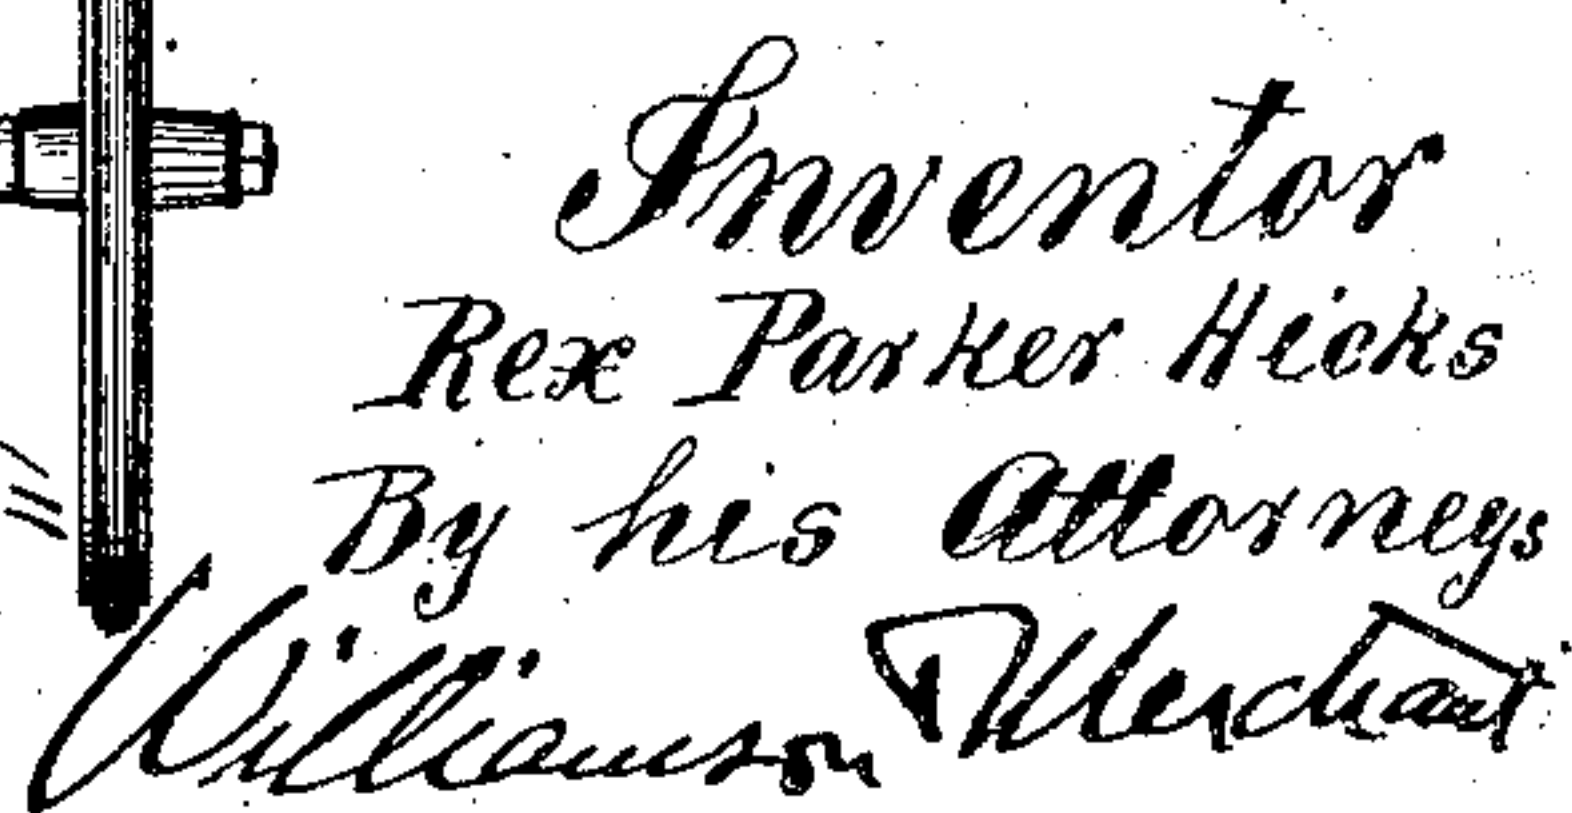 Inventor
Rex Parker Hicks
By his Attorneys
Williamson Merchant